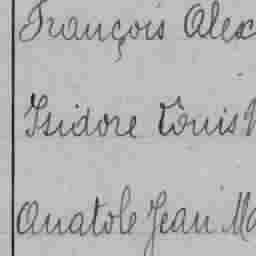 François Alex
Isidore Louis
Anatole Jean Ma